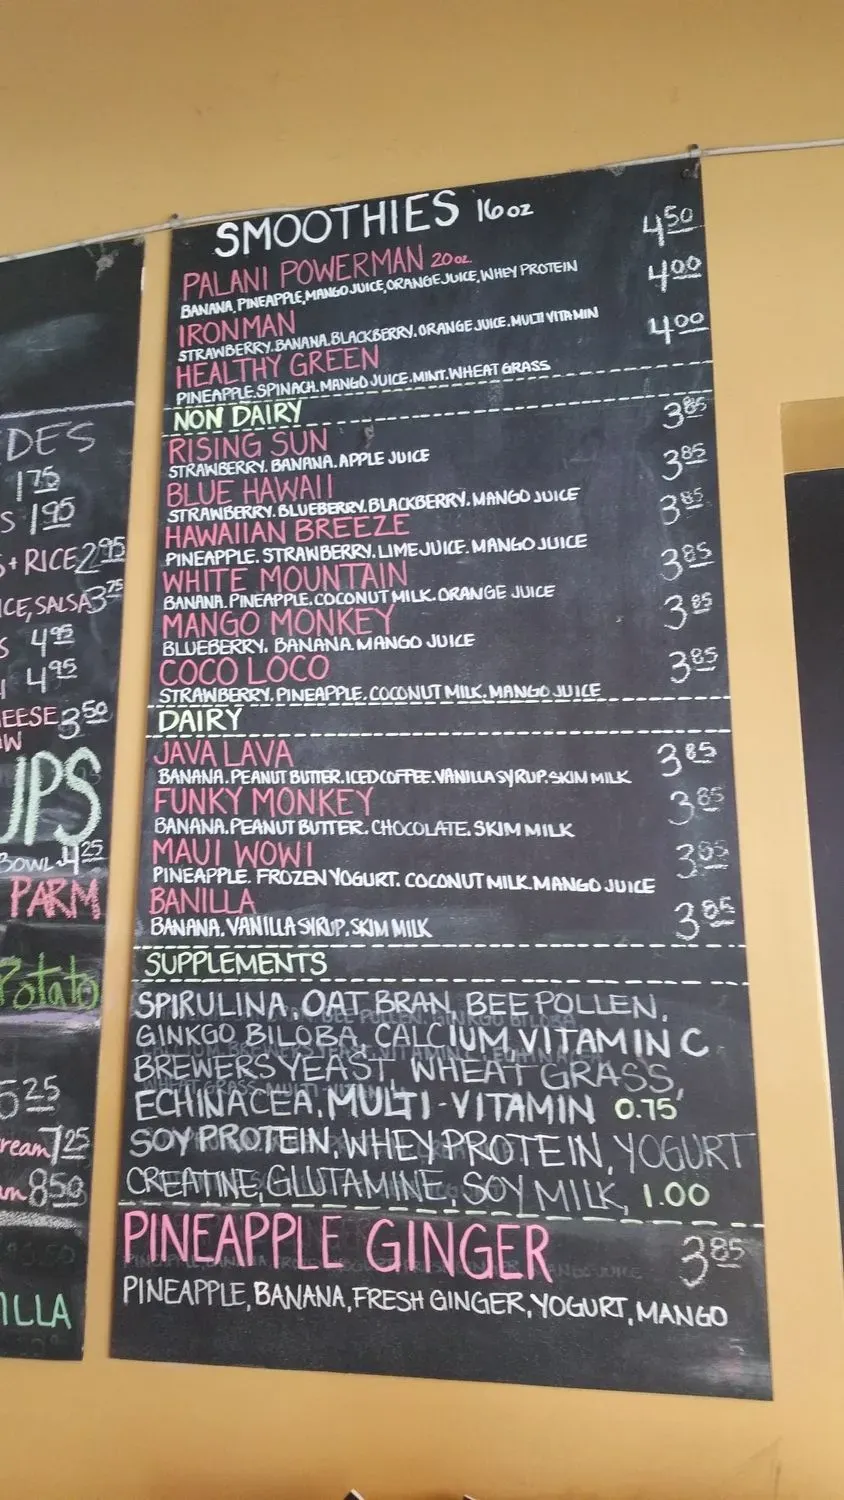 SMOOTHIES 16 oz
PALANI POWERMAN 20 oz. 4.50
BANANA, PINEAPPLE, MANGO JUICE, ORANGE JUICE, WHEY PROTEIN
IRONMAN 4.00
STRAWBERRY. BANANA. BLACKBERRY. ORANGE JUICE. MULTI VITAMIN
HEALTHY GREEN 4.00
PINEAPPLE. SPINACH. MANGO JUICE. MINT. WHEAT GRASS
NON DAIRY
RISING SUN 3.85
STRAWBERRY. BANANA. APPLE JUICE
BLUE HAWAII 3.85
STRAWBERRY. BLUEBERRY. BLACKBERRY. MANGO JUICE
HAWAIIAN BREEZE 3.85
PINEAPPLE. STRAWBERRY. LIME JUICE. MANGO JUICE
WHITE MOUNTAIN 3.85
BANANA. PINEAPPLE. COCONUT MILK. ORANGE JUICE
MANGO MONKEY 3.85
BLUEBERRY. BANANA. MANGO JUICE
COCO LOCO 3.85
STRAWBERRY. PINEAPPLE. COCONUT MILK. MANGO JUICE
DAIRY
JAVA LAVA 3.85
BANANA. PEANUT BUTTER. ICED COFFEE. VANILLA SYRUP. SKIM MILK
FUNKY MONKEY 3.85
BANANA. PEANUT BUTTER. CHOCOLATE. SKIM MILK
MAUI WOWI 3.85
PINEAPPLE. FROZEN YOGURT. COCONUT MILK. MANGO JUICE
BANILLA 3.85
BANANA. VANILLA SYRUP. SKIM MILK
SUPPLEMENTS
SPIRULINA, OAT BRAN BEE POLLEN,
GINKGO BILOBA, CALCIUM, VITAMIN C
BREWERS YEAST, WHEAT GRASS,
ECHINACEA, MULTI-VITAMIN 0.75
SOY PROTEIN, WHEY PROTEIN, YOGURT
CREATINE, GLUTAMINE, SOY MILK, 1.00
PINEAPPLE GINGER 3.85
PINEAPPLE, BANANA, FRESH GINGER, YOGURT, MANGO
DES
1.75
S 1.95
S + RICE 2.95
ICE, SALSA 3.75
S 4.95
4.95
EESE 3.50
W
UPS
BOWL 4.25
PARM
Potato
5.25
ream 7.25
am 8.50
ILLA